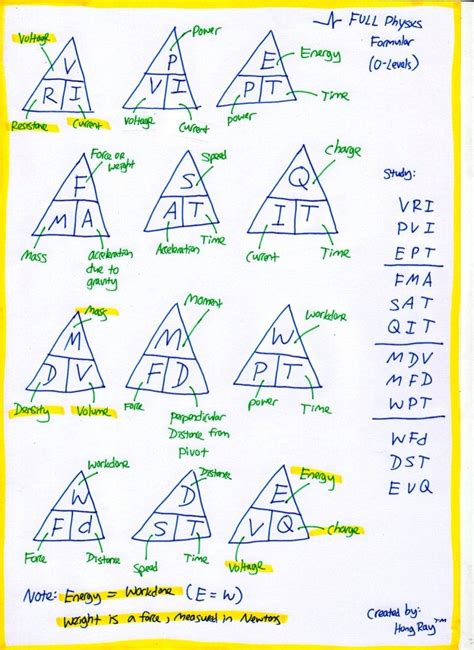 FULL Physics
Formular
(O-Levels)
Voltage
V
R I
Resistance
Current
Power
P
V I
Voltage
Current
Energy
E
P T
power
Time
Force or
weight
F
M A
Mass
acceleration
due to
gravity
Speed
S
A T
Acceleration
Time
charge
Q
I T
Current
Time
Study:
VRI
PVI
EPT
FMA
SAT
QIT
MDV
MFD
WPT
WFd
DST
EVQ
Mass
M
D V
Density
Volume
Moment
M
F D
Force
perpendicular
Distance from
pivot
Workdone
W
P T
power
Time
Workdone
W
F d
Force
Distance
Distance
D
S T
Speed
Time
Energy
E
V Q
Voltage
charge
Note: Energy = Workdone (E = W)
Weight is a force, measured in Newtons
Created by:
Hong Ray™